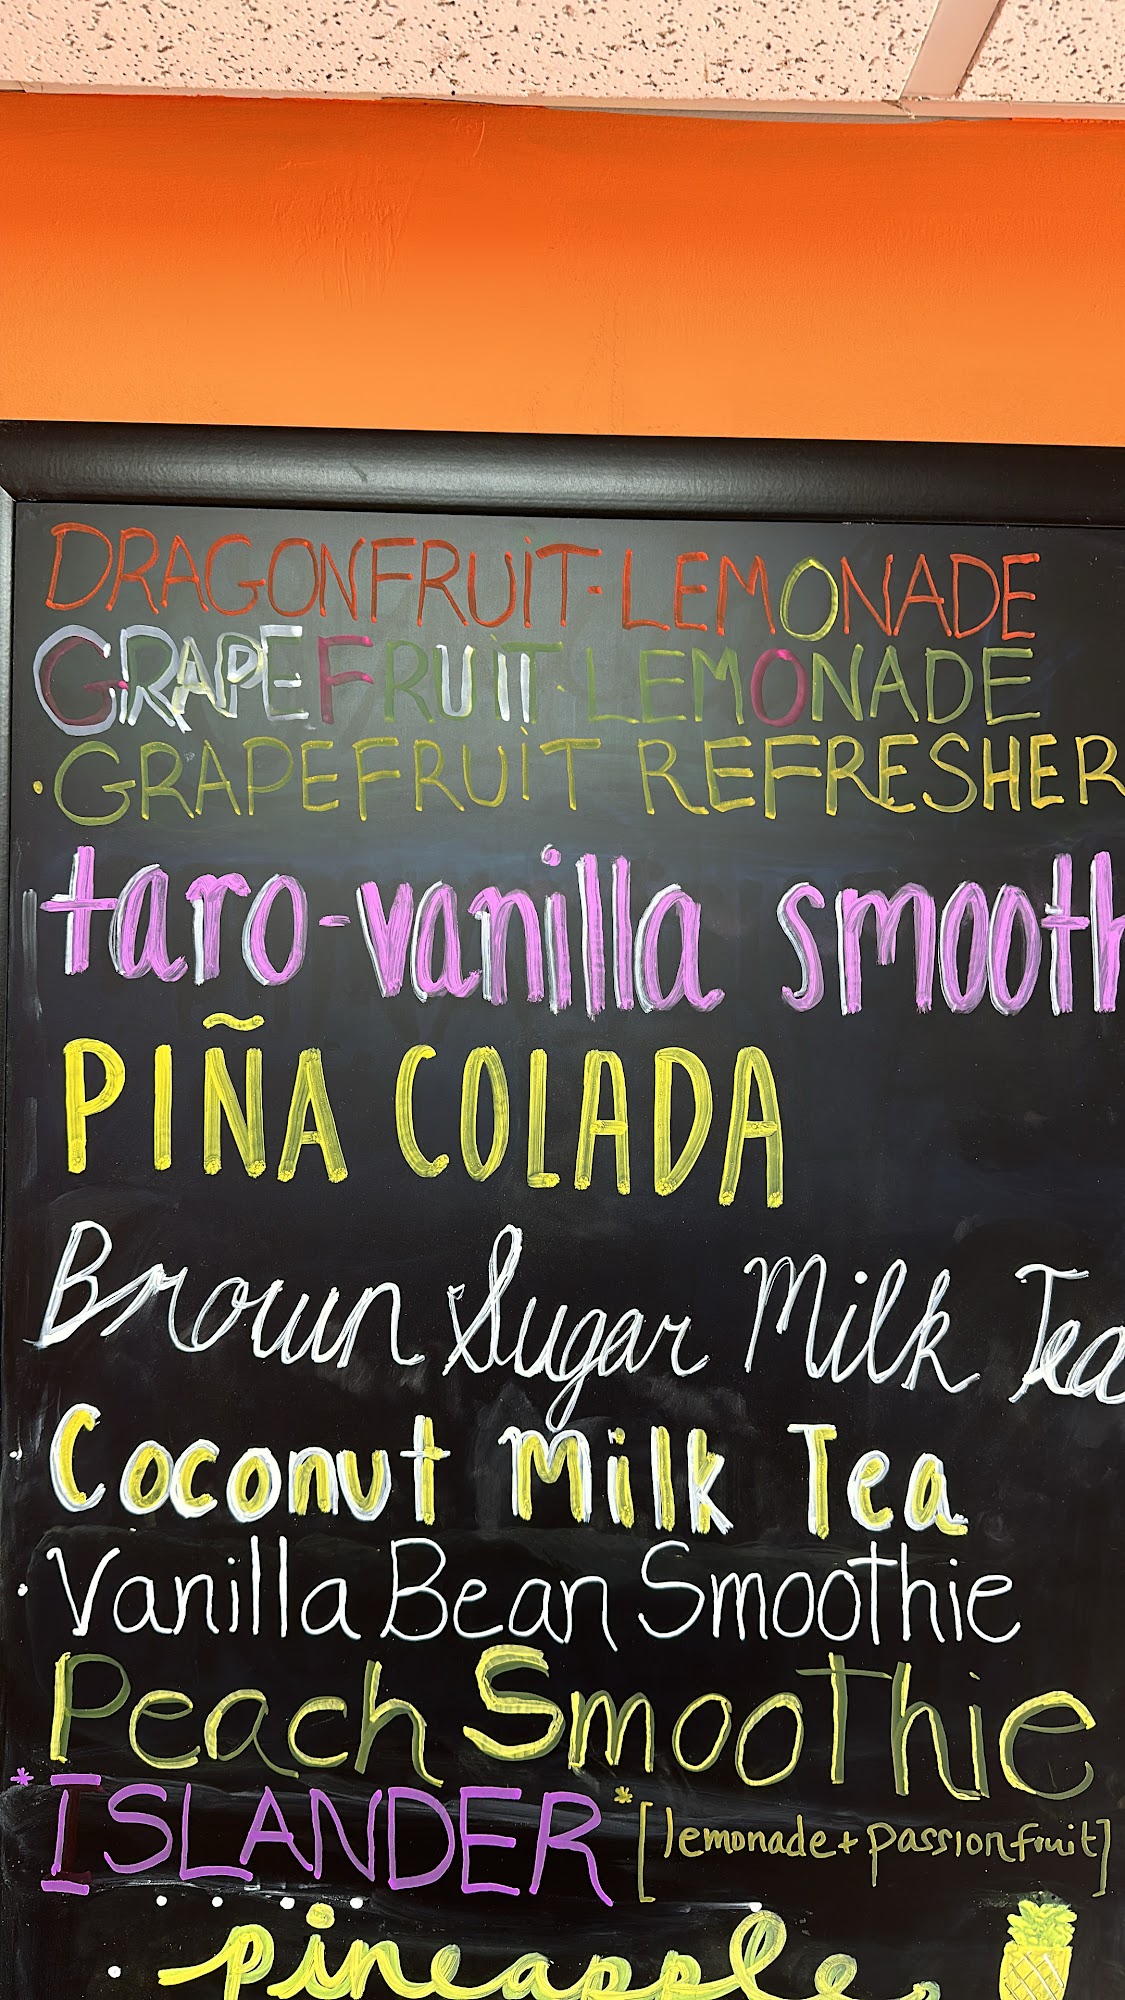 DRAGONFRUiT·LEMONADE
GRAPEFRUiT·LEMONADE
·GRAPEFRUiT REFRESHER
taro-vanilla smooth
PIÑA COLADA
Brown Sugar Milk Tea
Coconut Milk Tea
·Vanilla Bean Smoothie
Peach Smoothie
*ISLANDER* [lemonade + passionfruit]
pineapple